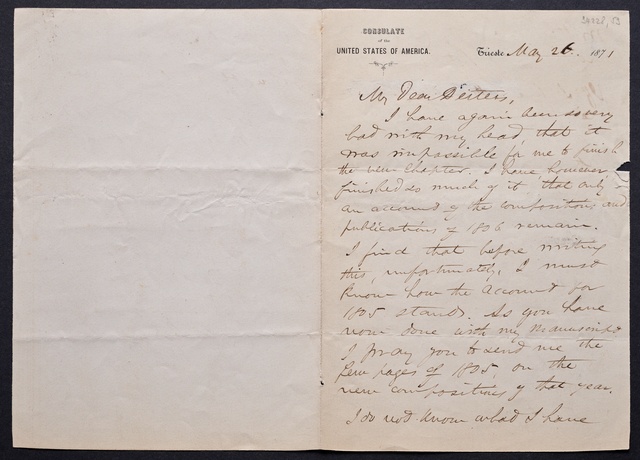 CONSULATE
of the
UNITED STATES OF AMERICA.
Trieste May 26. 1871
My Dear Deiters,
I have again been so very
bad with my head that it
was impossible for me to finish
the new Chapter. I have however
finished so much of it, that only
an account of the compositions and
publications of 1806 remain.
I find that before writing
this, unfortunately, I must
know how the account for
1805 stands. As you have
now done with my manuscript
I pray you to send me the
few pages of 1805, on the
new compositions of that year.
I do not know what I have